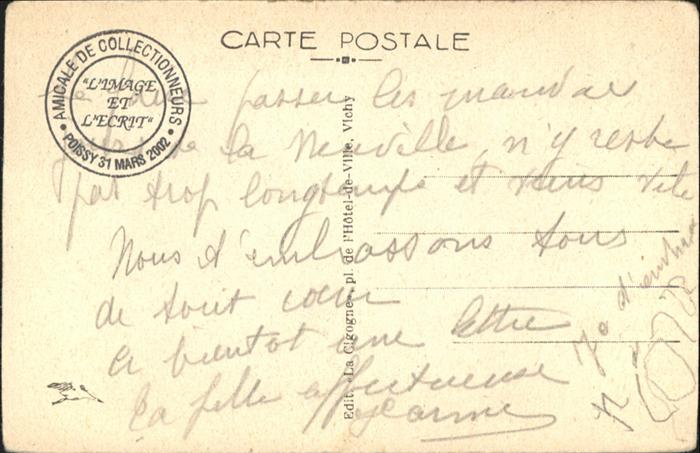 CARTE POSTALE
AMICALE DE COLLECTIONNEURS
"L'IMAGE
ET
L'ECRIT"
POISSY 31 MARS 2002
passer les mauvais
de la Neuville, n'y reste
pas trop longtemps et viens vite
Nous t'embrassons tous
de tout cœur
A bientot une lettre
Ta fille affectueuse
Edit. «La Cigogne», pl. de l'Hôtel-de-Ville, Vichy